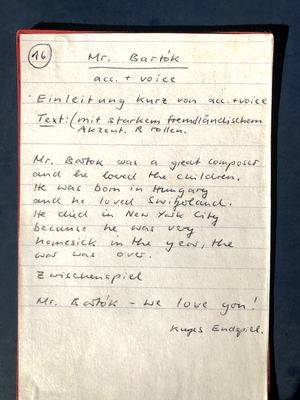 16
Mr. Bartók
acc. + voice
Einleitung kurz von acc. + voice
Text: (mit starkem fremdländischem
Akzent. R rollen.
Mr. Bartók was a great composer
and he loved the children.
He was born in Hungary
and he loved
He died in New York City
because he was very
homesick in the year, the
war was over.
Zwischenspiel
Mr. Bartók - we love you!
Kurzes Endspiel.